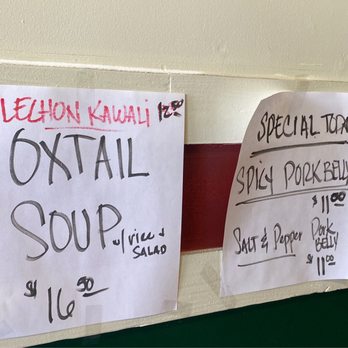 LECHON KAWALI 12.50
OXTAIL
SOUP w/ rice &
SALAD
$16.50
SPECIAL TODA
SPICY PORKBELLY
$11.00
SALT & Pepper Pork
BELLY
$11.00